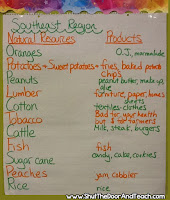 Southeast Region
Natural Resources Products
Oranges O.J., marmalade
Potatoes + Sweet potatoes + fries, baked potato
chips
Peanuts peanut butter, make-up
glue
Lumber furniture, paper, homes
Cotton sheets
textiles-clothes
Tobacco Bad for your health
but $ for farmers
Cattle Milk, steak, burgers
Fish fish
Sugar cane candy, cake, cookies
Peaches jam, cobbler
Rice rice
www.ShutTheDoorAndTeach.com